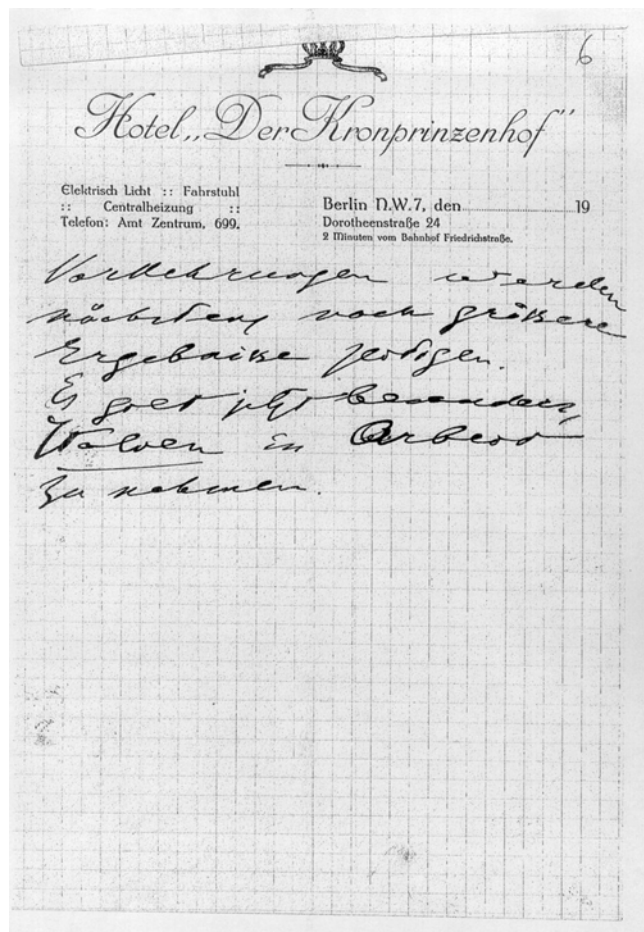 6
Hotel „Der Kronprinzenhof"
Elektrisch Licht :: Fahrstuhl
:: Centralheizung ::
Telefon: Amt Zentrum, 699.
Berlin N.W.7, den 19
Dorotheenstraße 24
2 Minuten vom Bahnhof Friedrichstraße.
Vorkehrungen werden
nächstens noch grössere
Ergebnisse zeitigen.
Es gilt jetzt besonders,
Italien in Arbeit
zu nehmen.